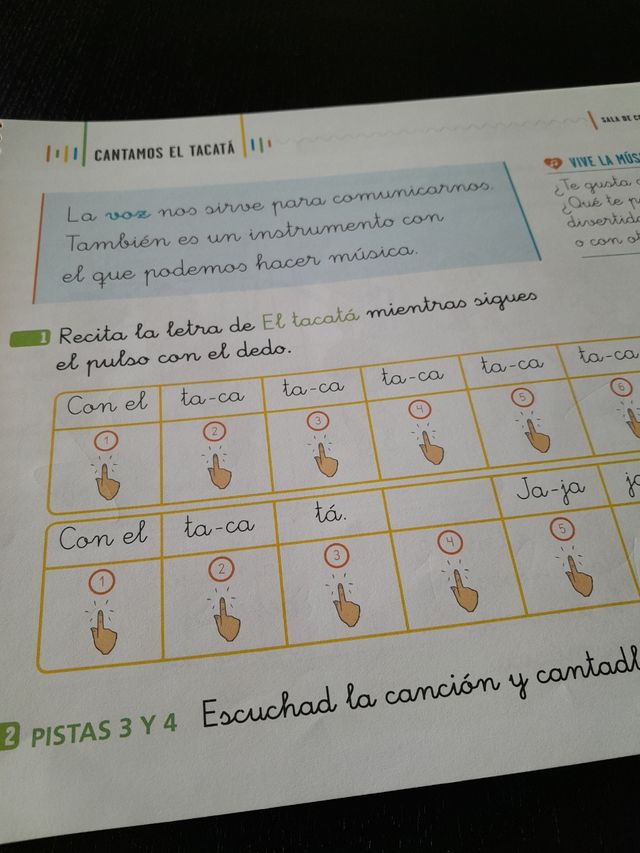 CANTAMOS EL TACATÁ
La voz nos sirve para comunicarnos.
También es un instrumento con
el que podemos hacer música.
VIVE LA
¿Te gusta
¿Qué te
o con
1 Recita la letra de El tacatá mientras sigues
el pulso con el dedo.
Con el ta-ca ta-ca ta-ca ta-ca ta-ca
1 2 3 4 5 6
Con el ta-ca tá. Ja-ja
1 2 3 4 5
2 PISTAS 3 Y 4 Escuchad la canción y